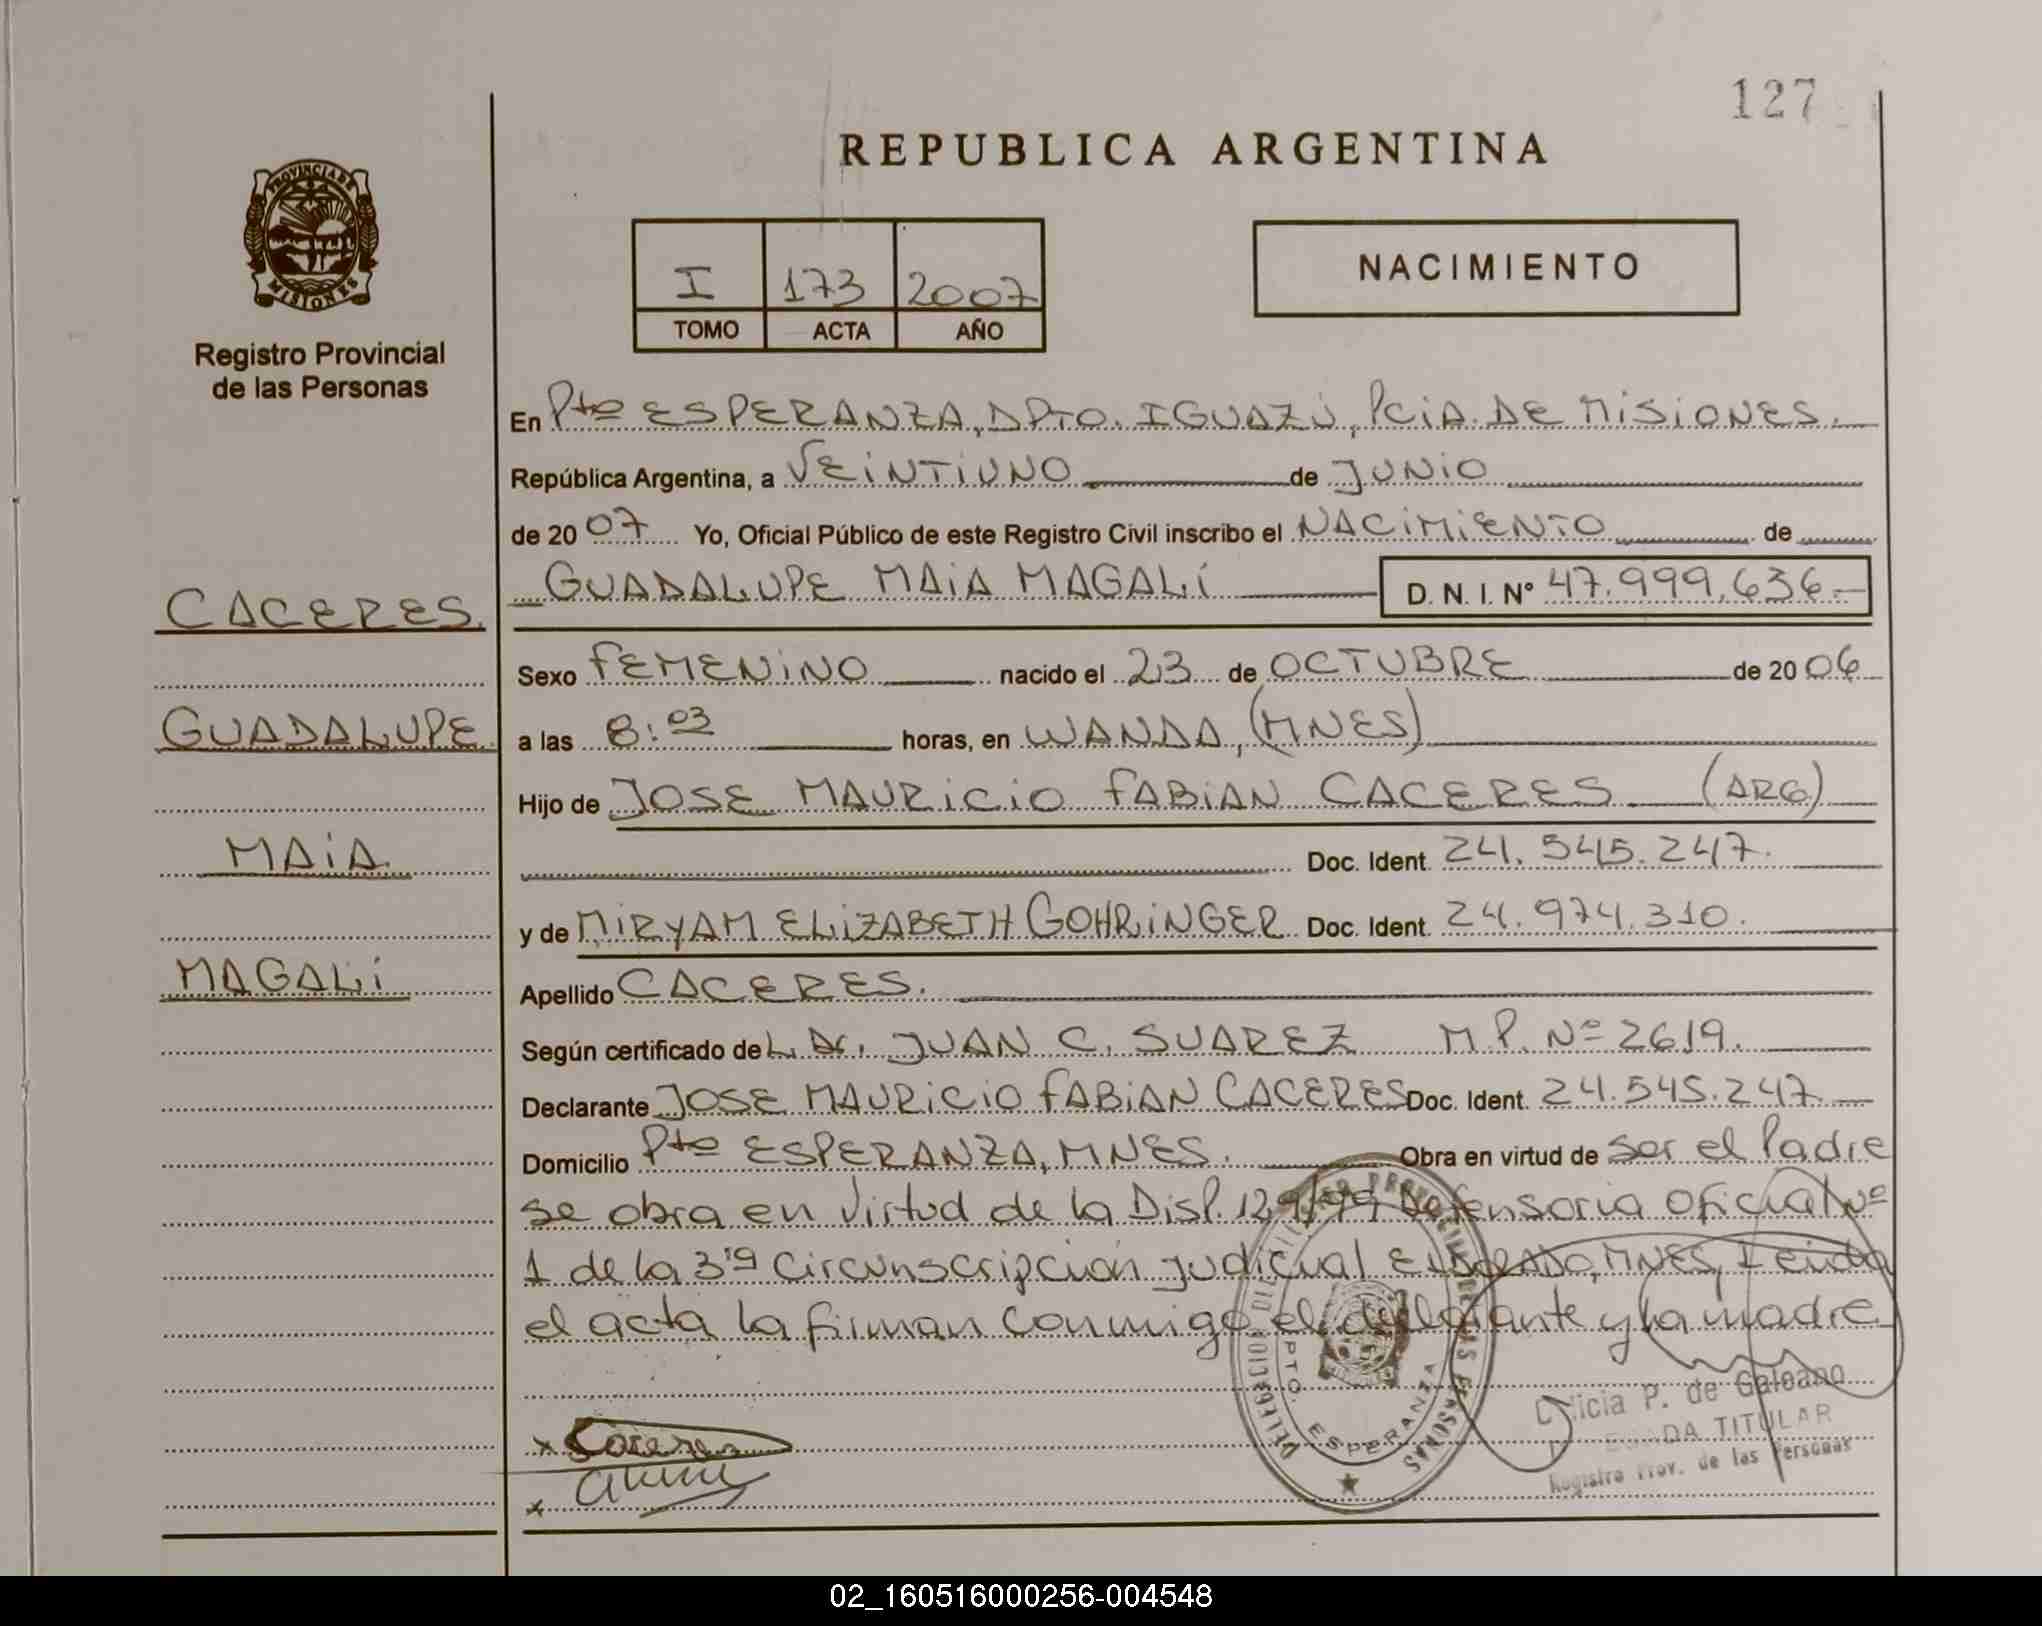 127
REPUBLICA ARGENTINA
PROVINCIA DE
MISIONES
Registro Provincial
de las Personas
I 173 2007
TOMO ACTA AÑO
NACIMIENTO
En Pto ESPERANZA, DPTO. IGUAZÚ, PCIA. DE MISIONES.
República Argentina, a VEINTIUNO de JUNIO
de 2007 Yo, Oficial Público de este Registro Civil inscribo el NACIMIENTO de
GUADALUPE MAIA MAGALÍ D. N. I. Nº 47.999.636.-
CACERES.
GUADALUPE
MAIA
MAGALÍ
Sexo FEMENINO nacido el 23 de OCTUBRE de 2006
a las 8:03 horas, en WANDA, (MNES)
Hijo de JOSE MAURICIO FABIAN CACERES (ARG)
Doc. Ident. 24.545.247.
y de MIRYAM ELIZABETH GOHRINGER Doc. Ident. 24.974.310.
Apellido CACERES.
Según certificado de L. Dr. JUAN C. SUAREZ M.P. Nº 2619.
Declarante JOSE MAURICIO FABIAN CACERES Doc. Ident. 24.545.247.
Domicilio Pto ESPERANZA, MNES. Obra en virtud de ser el Padre
se obra en virtud de la Disp. 129/99, Defensoria Oficial Nº
1 de la 3ra Circunscripción Judicial ELDORADO, MNES, Leida
el acta la firman conmigo el declarante y la madre
DELEGACION DEL REGISTRO PROVINCIAL DE LAS PERSONAS
PTO. ESPERANZA
P. de Galeano
TITULAR
Registro Prov. de las Personas
x Caceres
x
02_160516000256-004548